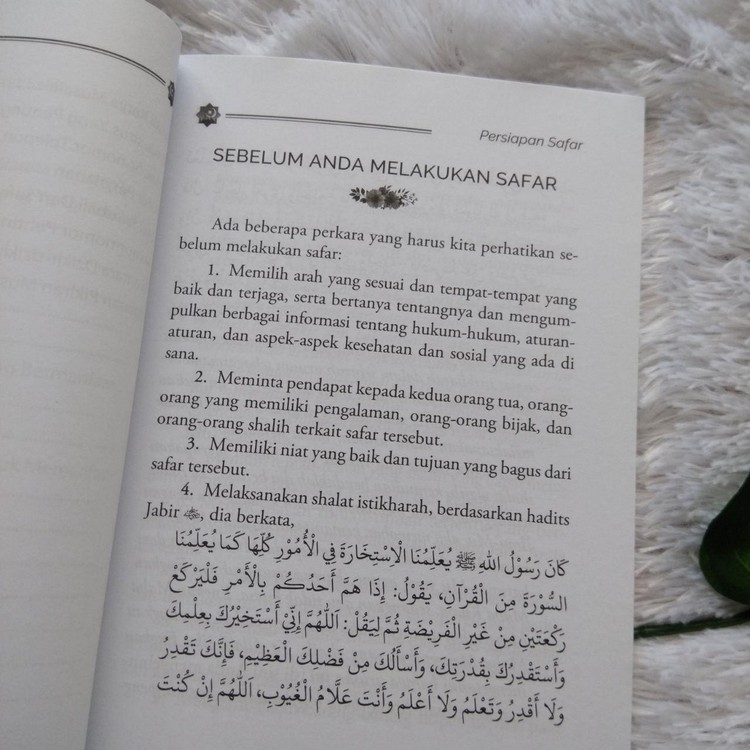 Persiapan Safar
SEBELUM ANDA MELAKUKAN SAFAR
Ada beberapa perkara yang harus kita perhatikan se-
belum melakukan safar:
1. Memilih arah yang sesuai dan tempat-tempat yang
baik dan terjaga, serta bertanya tentangnya dan mengum-
pulkan berbagai informasi tentang hukum-hukum, aturan-
aturan, dan aspek-aspek kesehatan dan sosial yang ada di
sana.
2. Meminta pendapat kepada kedua orang tua, orang-
orang yang memiliki pengalaman, orang-orang bijak, dan
orang-orang shalih terkait safar tersebut.
3. Memiliki niat yang baik dan tujuan yang bagus dari
safar tersebut.
4. Melaksanakan shalat istikharah, berdasarkan hadits
Jabir, dia berkata,
كَانَ رَسُوْلُ اللهِ ﷺ يُعَلِّمُنَا الْاِسْتِخَارَةَ فِي الْأُمُوْرِ كُلِّهَا كَمَا يُعَلِّمُنَا
السُّوْرَةَ مِنَ الْقُرْآنِ، يَقُوْلُ: إِذَا هَمَّ أَحَدُكُمْ بِالْأَمْرِ فَلْيَرْكَعْ
رَكْعَتَيْنِ مِنْ غَيْرِ الْفَرِيْضَةِ ثُمَّ لِيَقُلْ: اَللّٰهُمَّ إِنِّيْ أَسْتَخِيْرُكَ بِعِلْمِكَ
وَأَسْتَقْدِرُكَ بِقُدْرَتِكَ، وَأَسْأَلُكَ مِنْ فَضْلِكَ الْعَظِيْمِ، فَإِنَّكَ تَقْدِرُ
وَلَا أَقْدِرُ وَتَعْلَمُ وَلَا أَعْلَمُ وَأَنْتَ عَلَّامُ الْغُيُوْبِ، اَللّٰهُمَّ إِنْ كُنْتَ